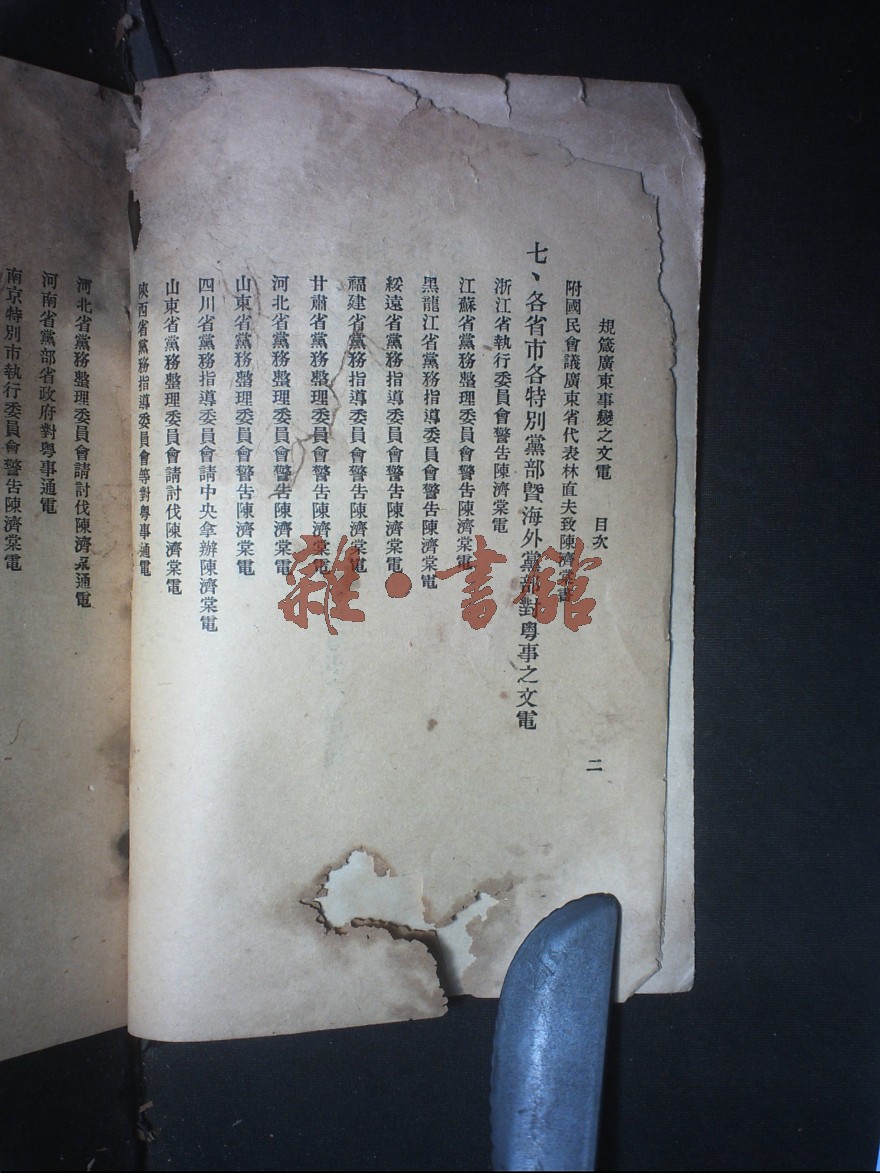 規箴廣東事變之文電 目次 二
附國民會議廣東省代表林直夫致陳濟棠書
七、各省市各特別黨部曁海外黨部對粵事之文電
浙江省執行委員會警告陳濟棠電
江蘇省黨務整理委員會警告陳濟棠電
黑龍江省黨務指導委員會警告陳濟棠電
綏遠省黨務指導委員會警告陳濟棠電
福建省黨務指導委員會警告陳濟棠電
甘肅省黨務整理委員會警告陳濟棠電
河北省黨務整理委員會警告陳濟棠電
山東省黨務整理委員會警告陳濟棠電
四川省黨務指導委員會請中央拿辦陳濟棠電
山東省黨務整理委員會請討伐陳濟棠電
陝西省黨務指導委員會等對粵事通電
河北省黨務整理委員會請討伐陳濟棠通電
河南省黨部省政府對粵事通電
南京特別市執行委員會警告陳濟棠電
雜·書館